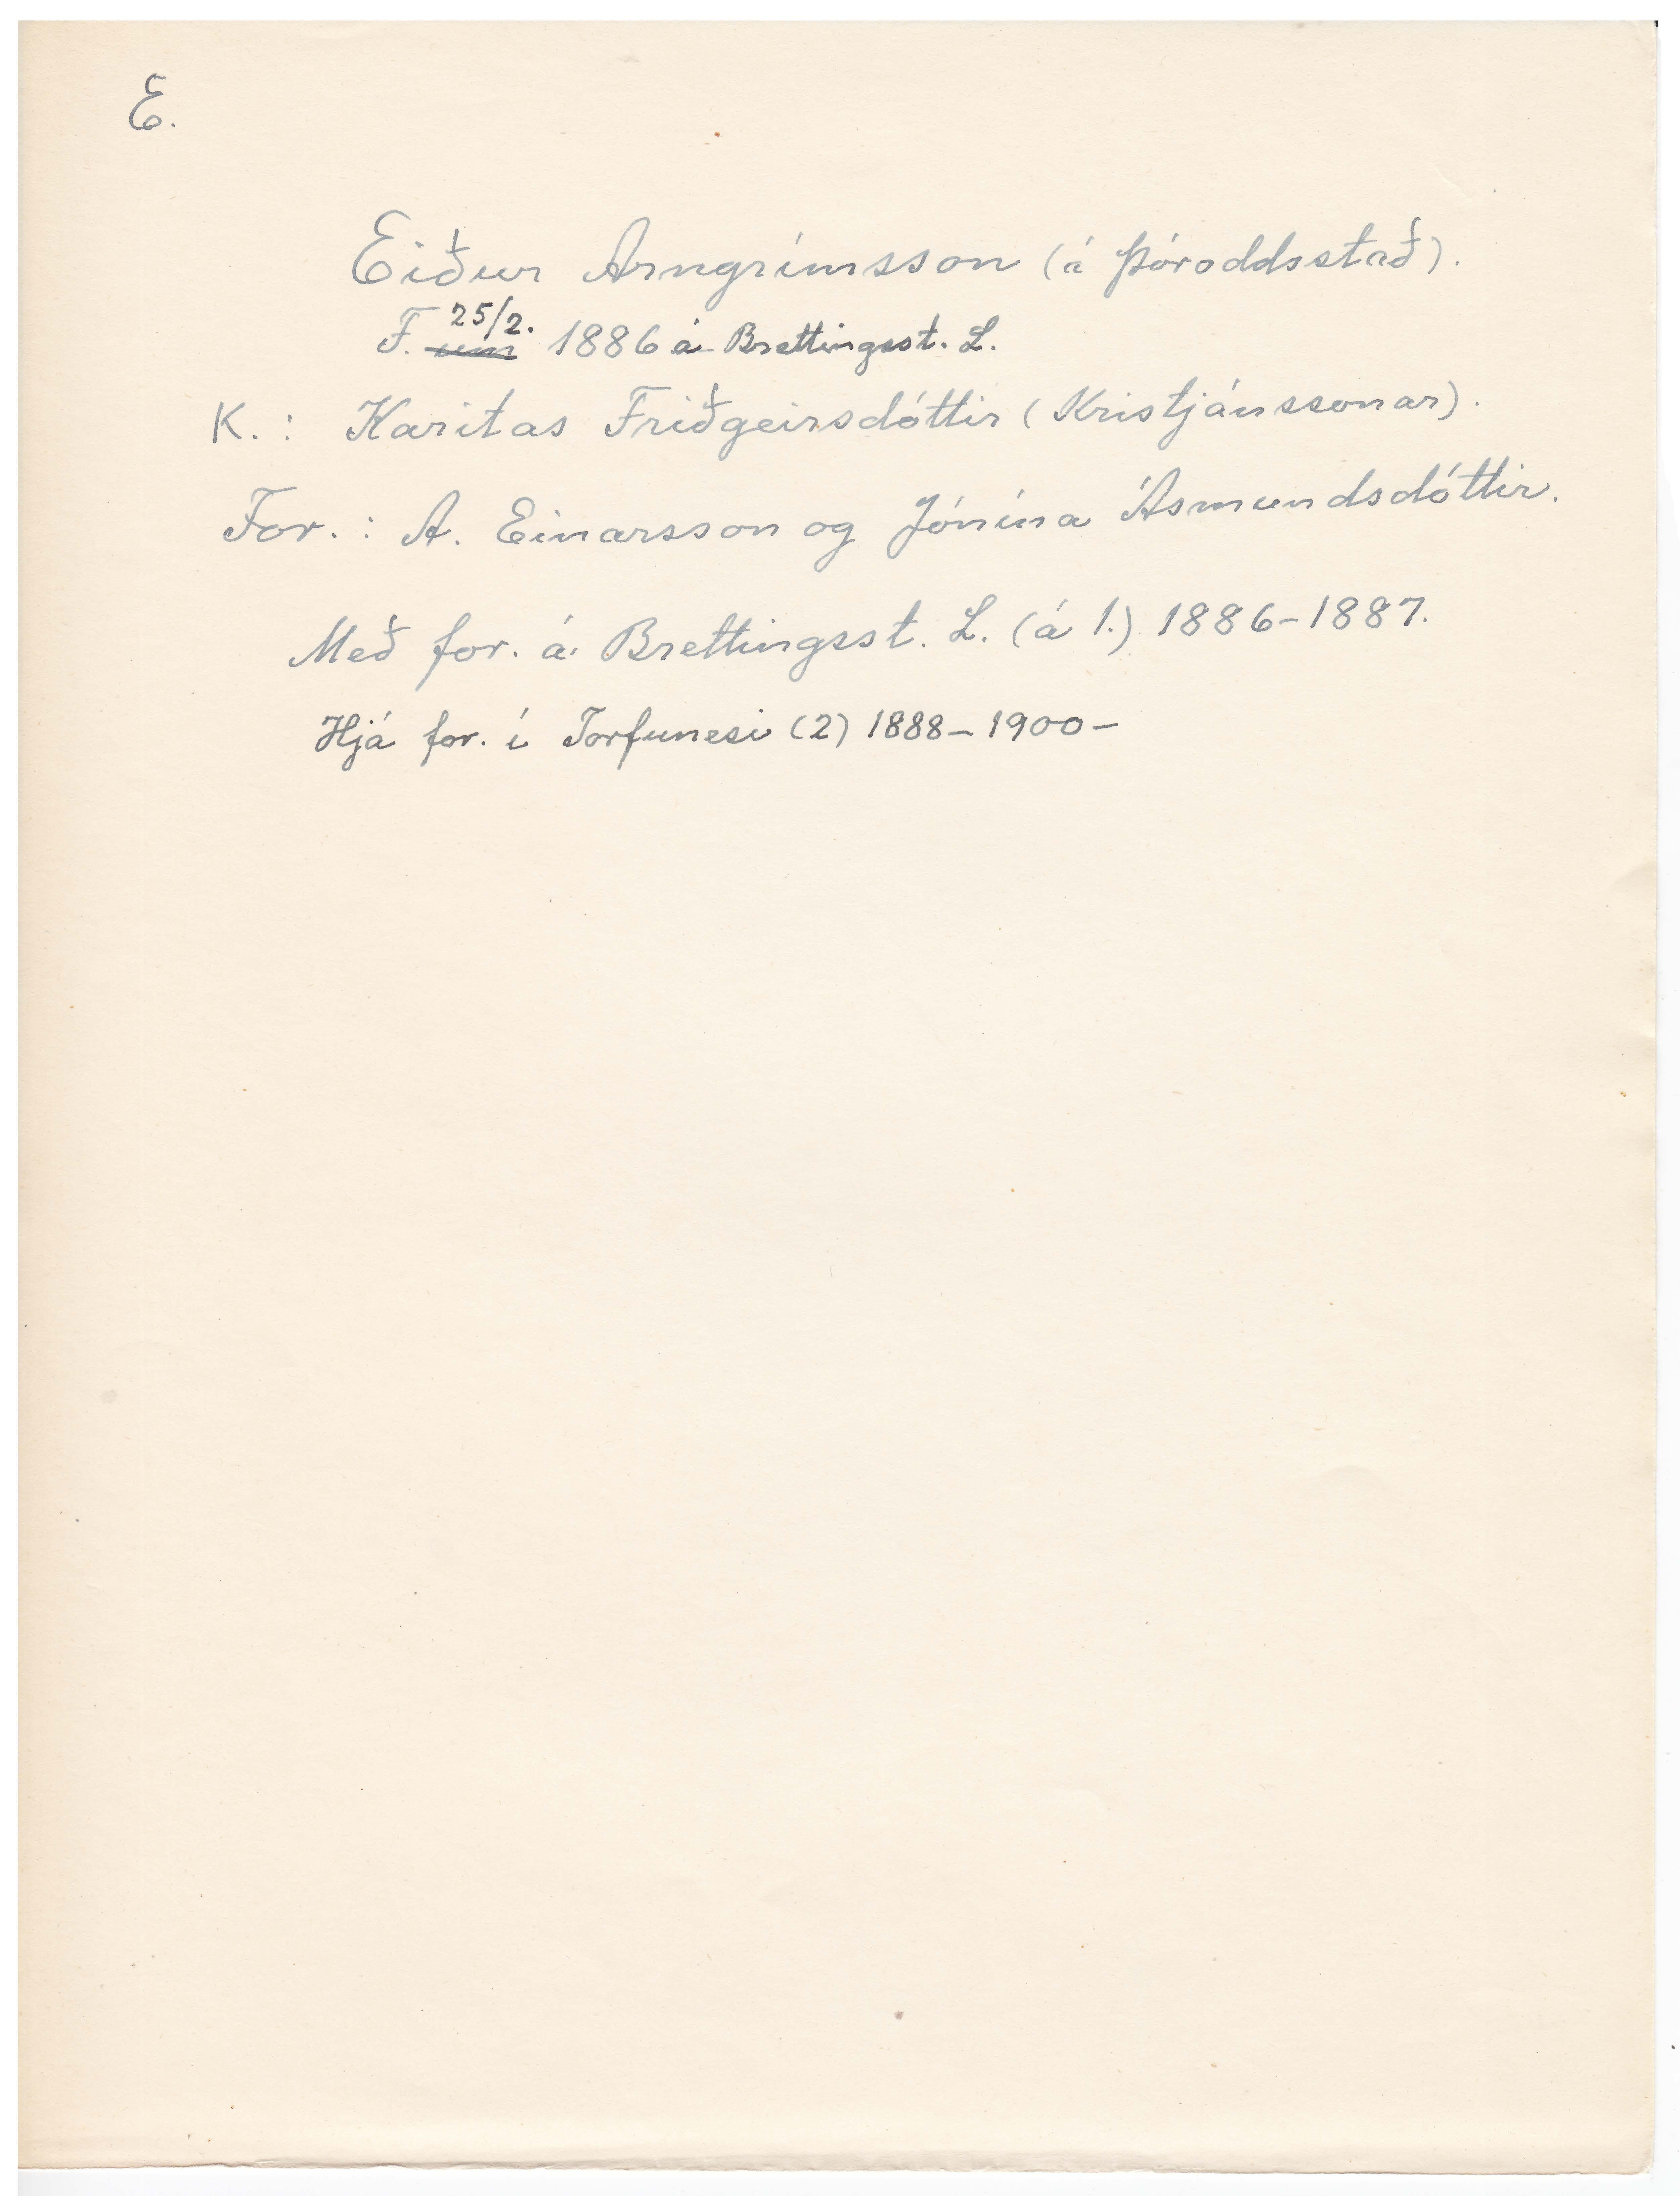 E.
Eiður Arngrímsson (á Þóroddsstað).
F. um 25/2. 1886 á Brettingsst. L.
K. : Karitas Friðgeirsdóttir (Kristjánssonar).
For. : A. Einarsson og Jónína Ásmundsdóttir.
Með for. á Brettingsst. L. (á 1.) 1886-1887.
Hjá for. í Torfunesi (2) 1888-1900-